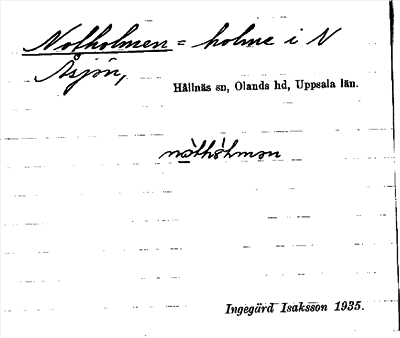 Notholmen = holme i N
Åsjön,
Hållnäs sn, Olands hd, Uppsala län.
nò̀thòlmən
Ingegärd Isaksson 1935.